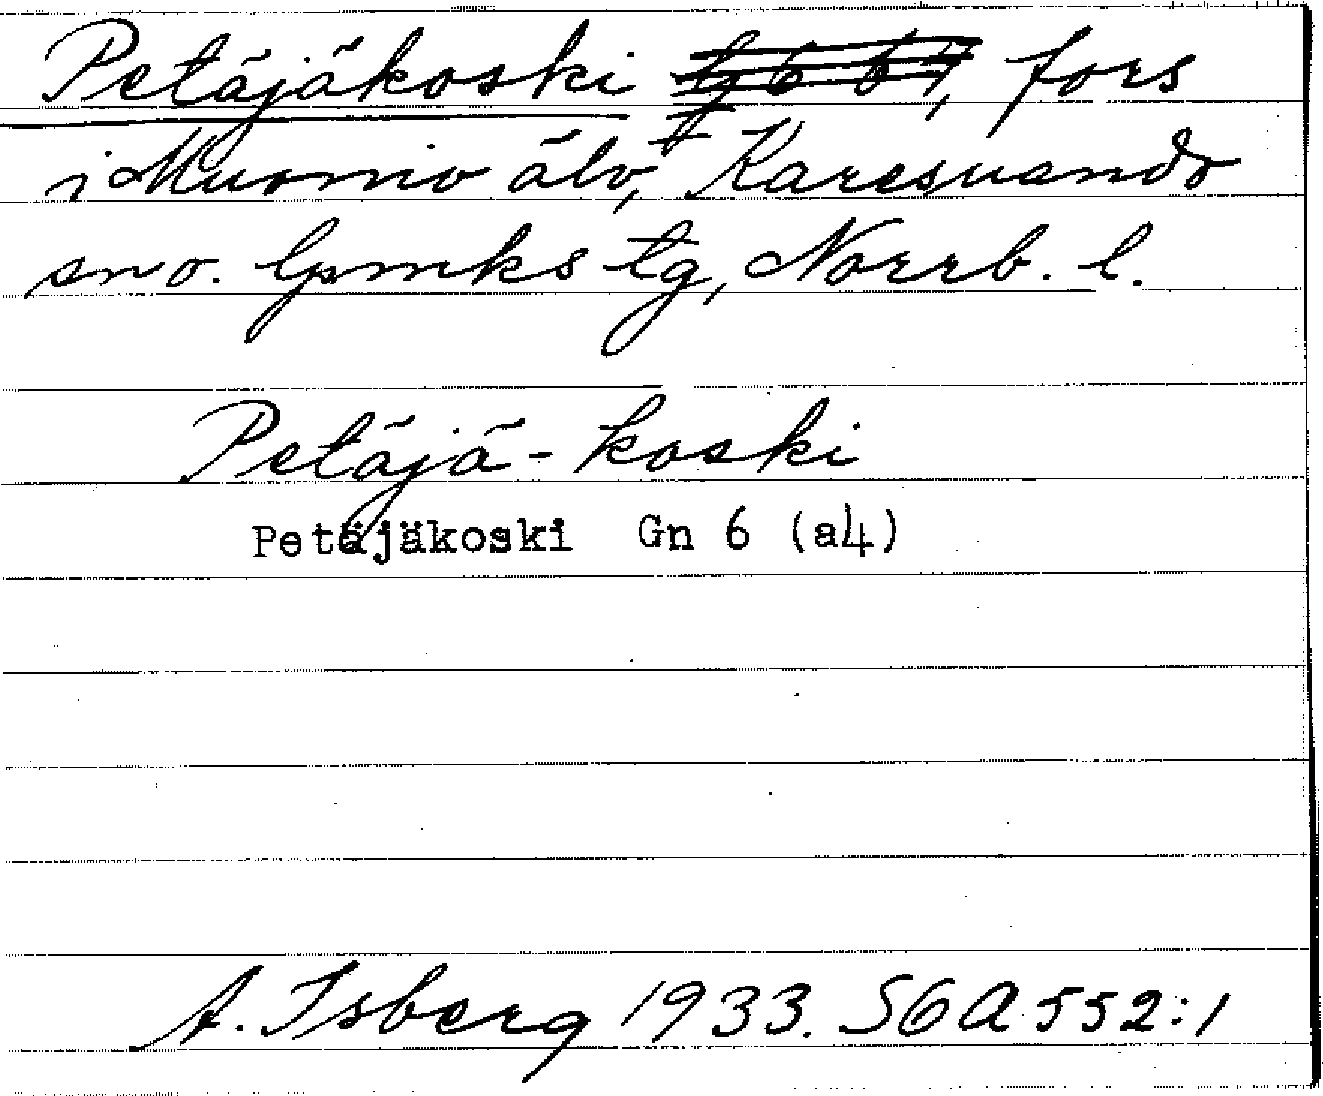 Petäjäkoski fors
i Muonio älv, Karesuando
sn o. lpmks tg, Norrb. l.
Petäjä-koski
Petäjäkoski Gn 6 (a4)
A. Isberg 1933. SGA 552:1